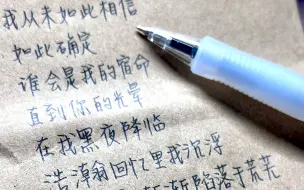 我从未如此相信
如此确定
谁会是我的宿命
直到你的光晕
在我黑夜降临
浩瀚回忆里我沉浮
渐陷落于荒芜